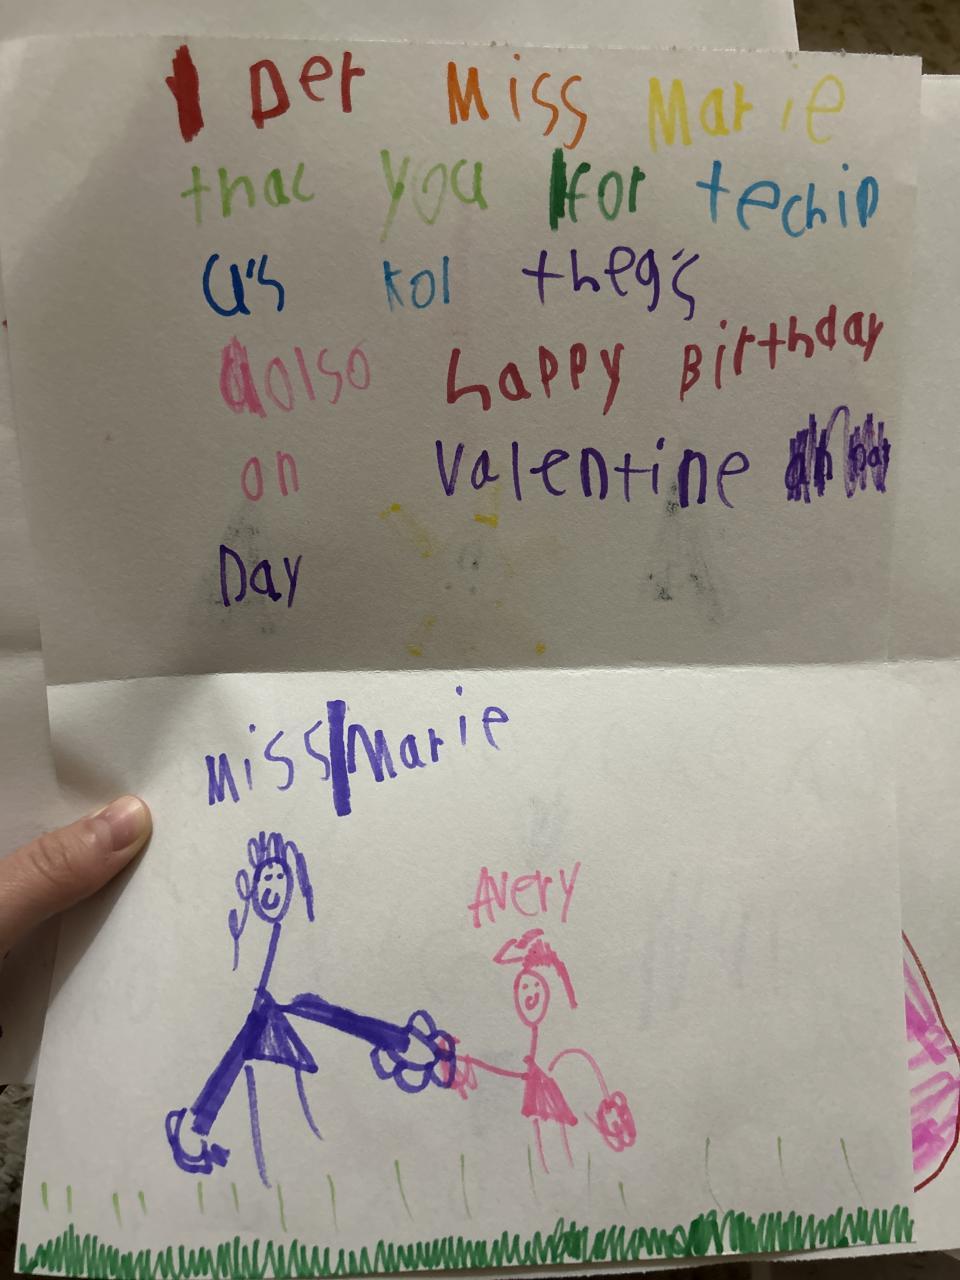 Der Miss Marie
thac you for techin
us kol theg's
aolso happy Birthday
on Valentine
Day
Miss Marie
Avery